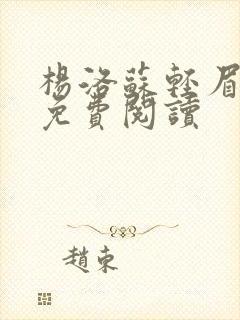 楊洛蘇輕眉
免費閱讀
趙東